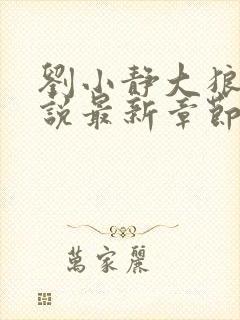 劉小靜大狼
說最新章節
萬家麗